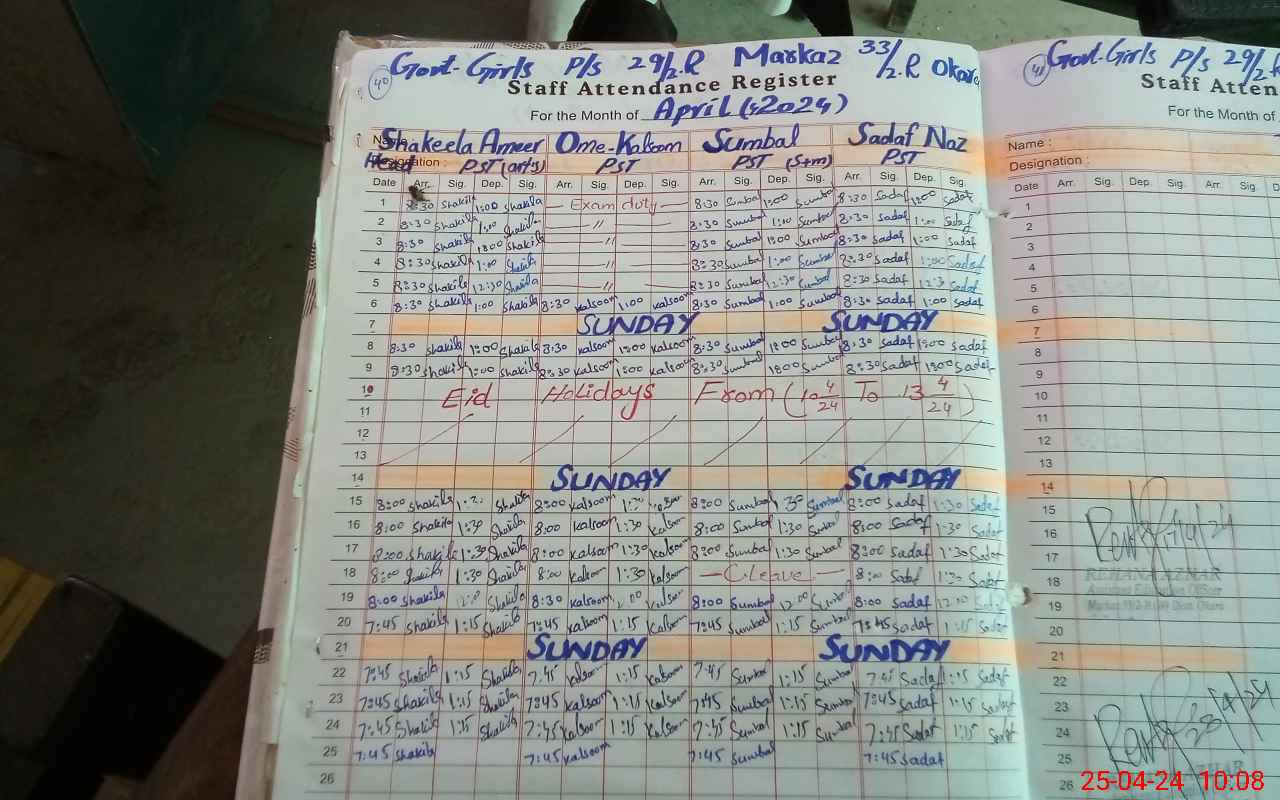 40 Govt-Girls P/S 29/2.R Markaz 33/2.R Okara
Staff Attendance Register
For the Month of April (2024)
Name Shakeela Ameer Ome-Kalsoom Sumbal Sadaf Naz
Designation : Head PST (arts) PST PST (S+m) PST
Date Arr. Sig. Dep. Sig. Arr. Sig. Dep. Sig. Arr. Sig. Dep. Sig. Arr. Sig. Dep. Sig.
1 8:30 Shakila 1:00 Shakila Exam duty 8:30 Sumbal 1:00 Sumbal 8:30 Sadaf 1:00 Sadaf
2 8:30 Shakila 1:00 Shakila — // — 8:30 Sumbal 1:00 Sumbal 8:30 Sadaf 1:00 Sadaf
3 8:30 Shakila 1:00 Shakila — // — 8:30 Sumbal 1:00 Sumbal 8:30 Sadaf 1:00 Sadaf
4 8:30 Shakila 1:00 Shakila — // — 8:30 Sumbal 1:00 Sumbal 8:30 Sadaf 1:00 Sadaf
5 8:30 Shakila 12:30 Shakila — // — 8:30 Sumbal 12:30 Sumbal 8:30 Sadaf 12:30 Sadaf
6 8:30 Shakila 1:00 Shakila 8:30 Kalsoom 1:00 Kalsoom 8:30 Sumbal 1:00 Sumbal 8:30 Sadaf 1:00 Sadaf
7 SUNDAY SUNDAY
8 8:30 Shakila 1:00 Shakila 8:30 Kalsoom 1:00 Kalsoom 8:30 Sumbal 1:00 Sumbal 8:30 Sadaf 1:00 Sadaf
9 8:30 Shakila 1:00 Shakila 8:30 Kalsoom 1:00 Kalsoom 8:30 Sumbal 1:00 Sumbal 8:30 Sadaf 1:00 Sadaf
10 Eid Holidays From (10 4/24 To 13 4/24)
11
12
13
14 SUNDAY SUNDAY
15 8:00 Shakila Shakila 8:00 Kalsoom 8:00 Sumbal 1:30 Sumbal 8:00 Sadaf 1:30 Sadaf
16 8:00 Shakila 1:30 Shakila 8:00 Kalsoom 1:30 Kalsoom 8:00 Sumbal 1:30 Sumbal 8:00 Sadaf 1:30 Sadaf
17 8:00 Shakila 1:30 Shakila 8:00 Kalsoom 1:30 Kalsoom 8:00 Sumbal 1:30 Sumbal 8:00 Sadaf 1:30 Sadaf
18 8:00 Shakila 1:30 Shakila 8:00 Kalsoom 1:30 Kalsoom — C.leave — 8:00 Sadaf 1:30 Sadaf
19 8:00 Shakila Shakila 8:30 Kalsoom 12:00 Kalsoom 8:00 Sumbal 12:00 Sumbal 8:00 Sadaf 12:00 Sadaf
20 7:45 Shakila 1:15 Shakila 7:45 Kalsoom 1:15 Kalsoom 7:45 Sumbal 1:15 Sumbal 7:45 Sadaf 1:15 Sadaf
21 SUNDAY SUNDAY
22 7:45 Shakila 1:15 Shakila 7:45 Kalsoom 1:15 Kalsoom 7:45 Sumbal 1:15 Sumbal 7:45 Sadaf 1:15 Sadaf
23 7:45 Shakila 1:15 Shakila 7:45 Kalsoom 1:15 Kalsoom 7:45 Sumbal 1:15 Sumbal 7:45 Sadaf 1:15 Sadaf
24 7:45 Shakila 1:15 Shakila 7:45 Kalsoom 1:15 Kalsoom 7:45 Sumbal 1:15 Sumbal 7:45 Sadaf 1:15 Sadaf
25 7:45 Shakila 7:45 Kalsoom 7:45 Sumbal 7:45 Sadaf
26
41 Govt-Girls P/S 29/2.R
Staff Atten
For the Month of
Name :
Designation :
Date Arr. Sig. Dep. Sig. Arr. Sig. D
1
2
3
4
5
6
7
8
9
10
11
12
13
14
15
16
17
18 REHANA AZHAR
Assistant Education Officer
19
20
21
22
23
24
25 AZHAR
26
25-04-24 10:08